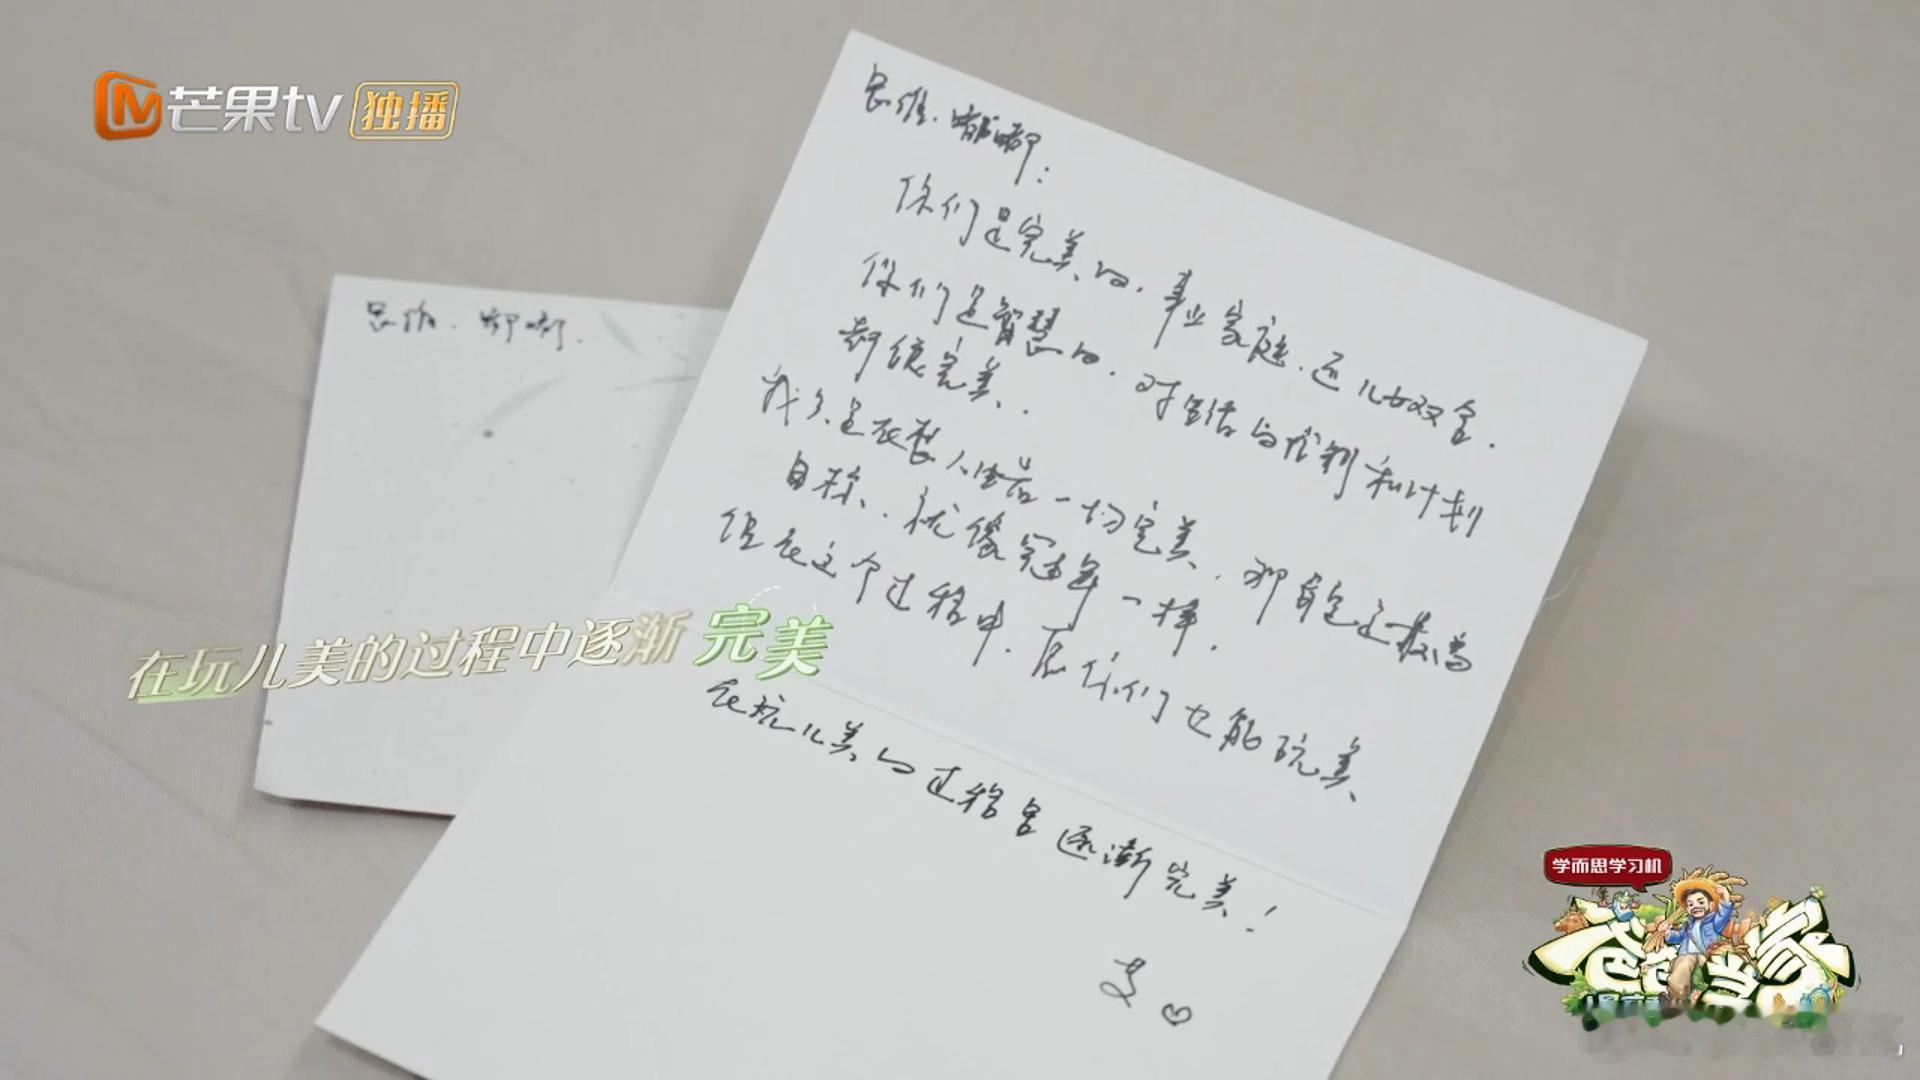 芒果tv 独播
思维、嘟嘟:
你们是完美的,事业家庭、还儿女双全.
你们是智慧的,对生活的控制和计划
都很完美.
我多是在想人生若一切完美,那肯定是最为
自称、就像冠军一样.
但在这个过程中,愿你们也能玩美
在玩儿美的过程当逐渐完美!
思维、嘟嘟.
在玩儿美的过程中逐渐完美
学而思学习机
爸爸当家